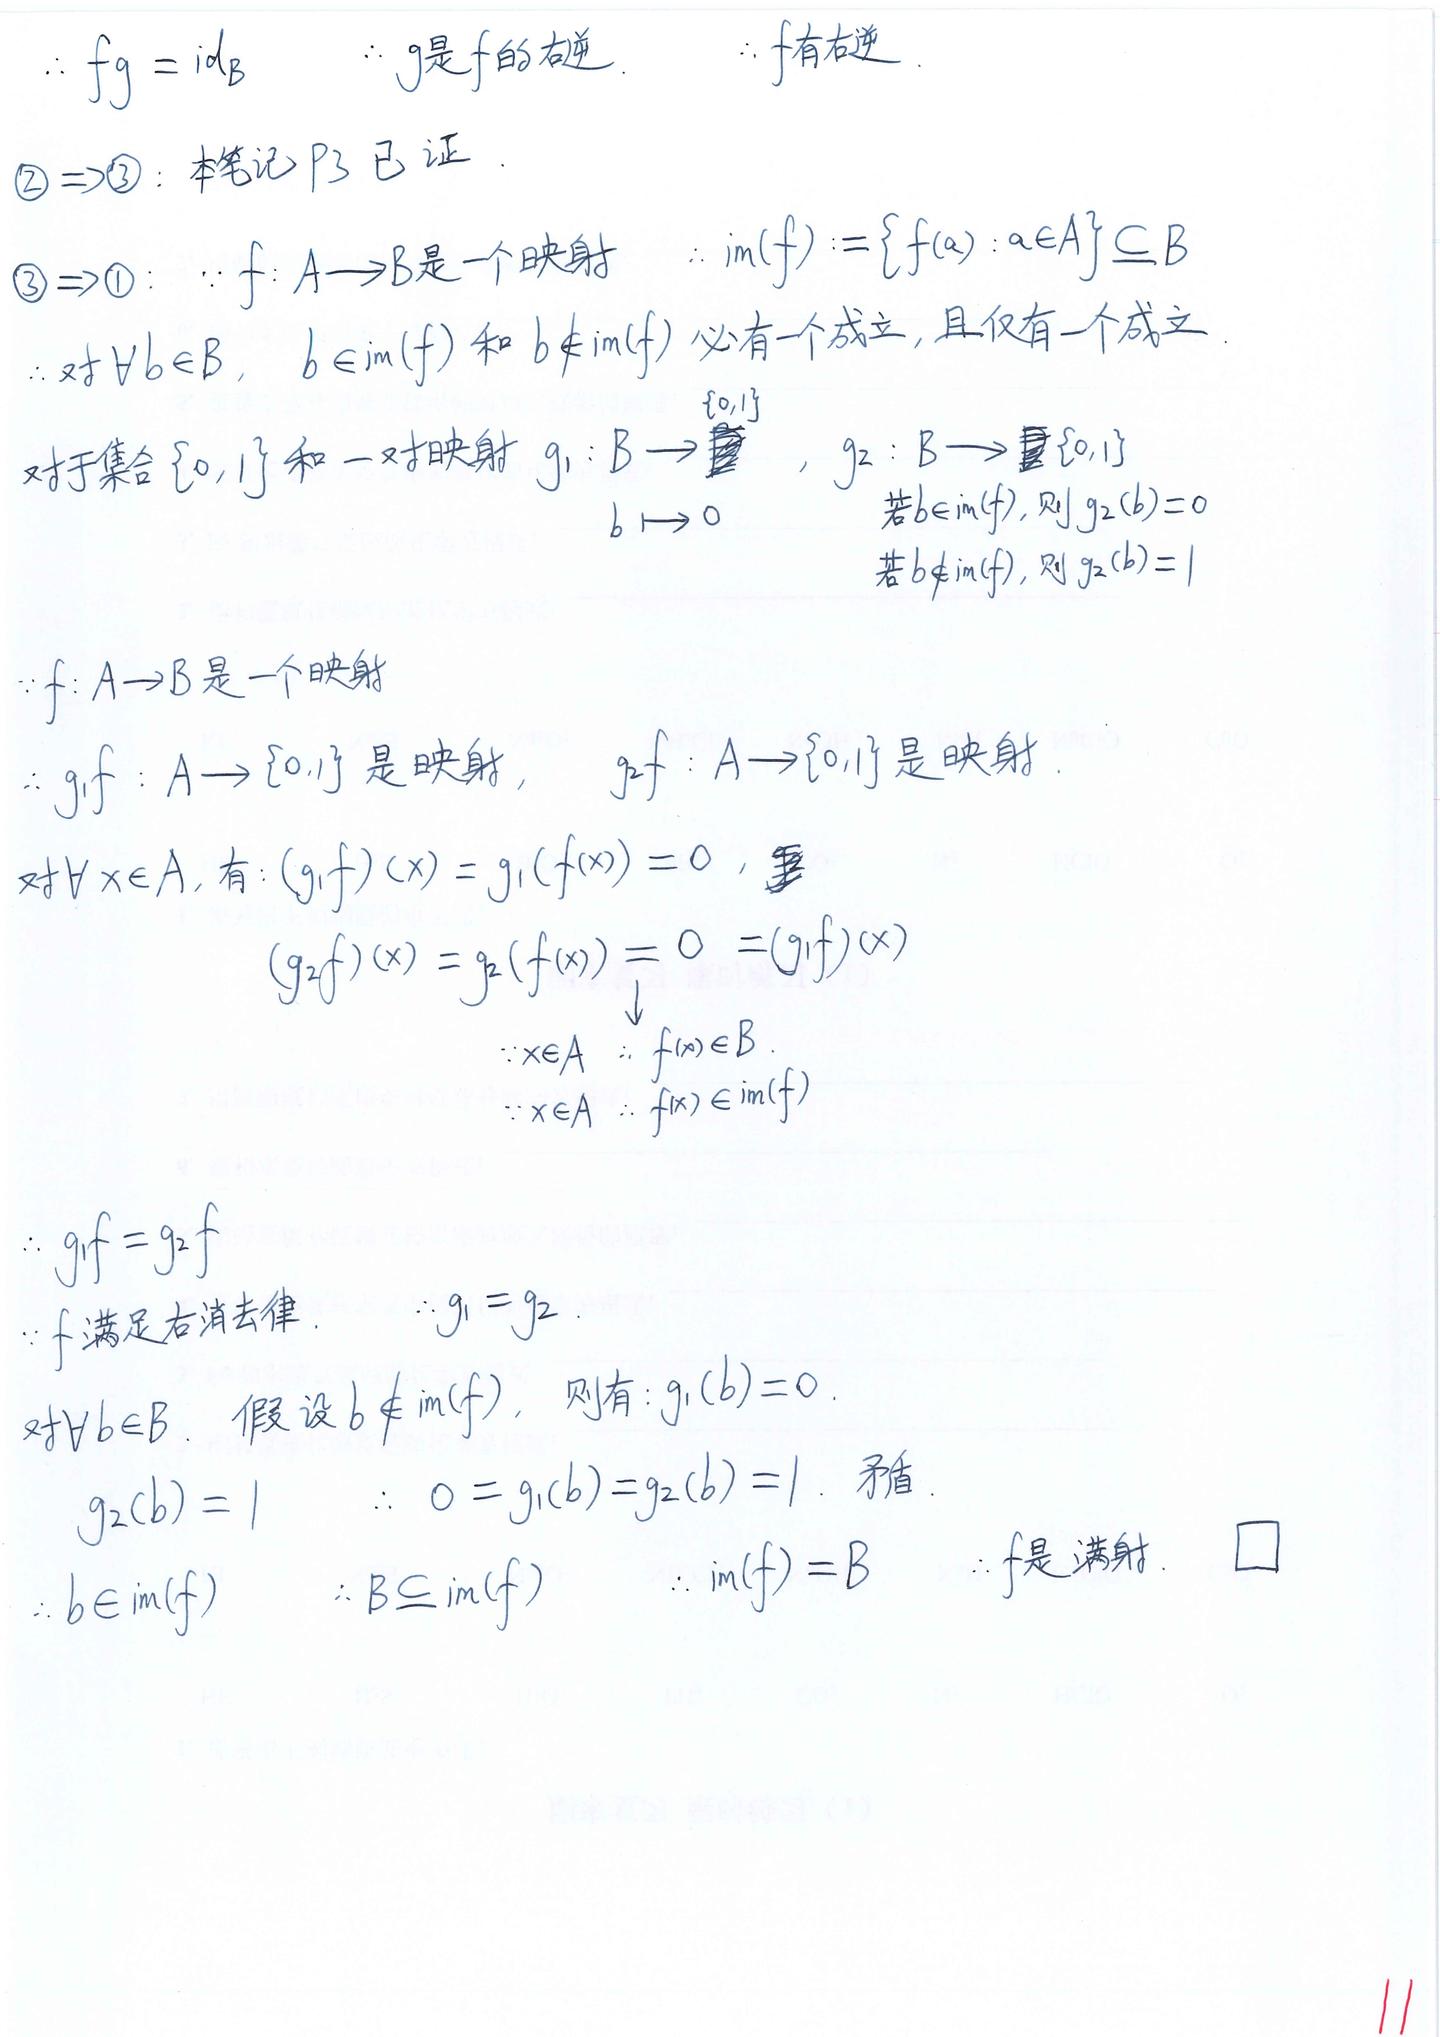 ∴ fg = id_B  ∴ g是f的右逆.  ∴ f有右逆.
②=>③: 本笔记P3已证.
③=>①: ∵ f: A→B是一个映射  ∴ im(f) := {f(a) : a∈A} ⊆ B
∴ 对∀b∈B, b∈im(f) 和 b∉im(f) 必有一个成立, 且仅有一个成立.
{0,1}
对于集合{0,1}和一对映射 g₁: B → , g₂: B → {0,1}
b ↦ 0  若b∈im(f), 则 g₂(b)=0
若b∉im(f), 则 g₂(b)=1
∵ f: A→B是一个映射
∴ g₁f : A→{0,1} 是映射, g₂f : A→{0,1} 是映射.
对∀x∈A, 有: (g₁f)(x) = g₁(f(x)) = 0,
(g₂f)(x) = g₂(f(x)) = 0 = (g₁f)(x)
↓
∵ x∈A ∴ f(x)∈B.
∵ x∈A ∴ f(x)∈im(f)
∴ g₁f = g₂f
∵ f满足右消去律.  ∴ g₁ = g₂.
对∀b∈B. 假设b∉im(f), 则有: g₁(b)=0.
g₂(b) = 1  ∴ 0 = g₁(b) = g₂(b) = 1. 矛盾.
∴ b∈im(f)  ∴ B⊆im(f)  ∴ im(f) = B  ∴ f是满射. □
11